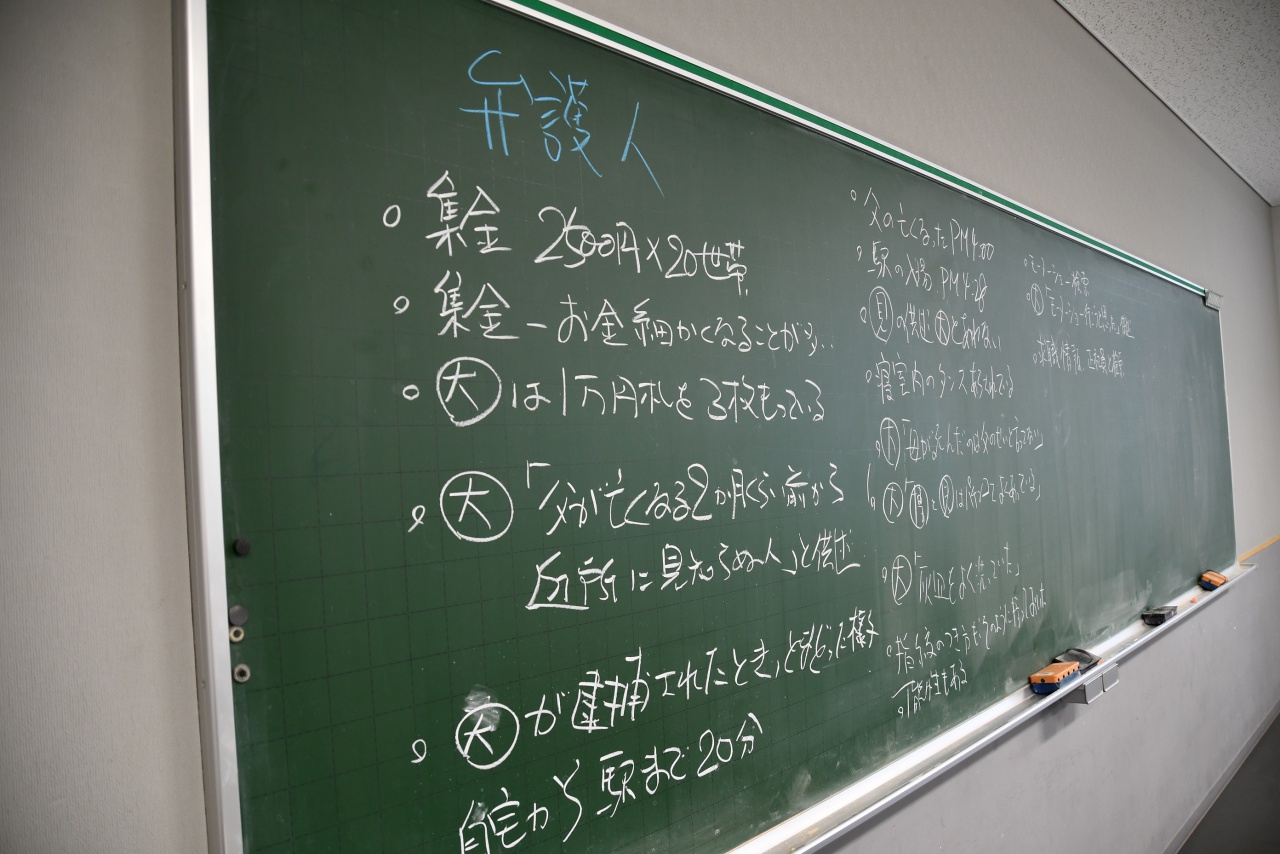 弁護人
○集金 2500円×20世帯
○集金-お金細かくなることが多..
○大は1万円札を3枚もっている
○大「父が亡くなる2か月くらい前から
近所に見知らぬ人」と供述
○大が逮捕されたとき、とまどった様子
自宅から駅まで20分
○父の亡くなったPM4:00
○駅の入場 PM4:28
○見の供述 大とあわない
○寝室内のタンスあらされている
○大「母が死んだのは父のせいと言ってない」
大「と見は
○大「灰皿をよく洗っていた」
○指紋のつき方も
可能性もある
検索
大
求職情報